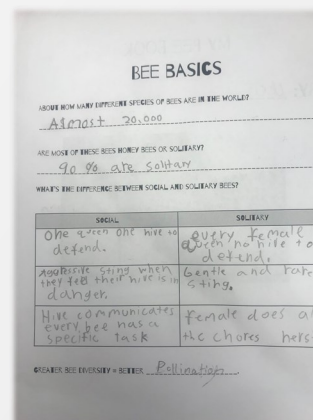 BEE BASICS
ABOUT HOW MANY DIFFERENT SPECIES OF BEES ARE IN THE WORLD?
Almost 20,000
ARE MOST OF THESE BEES HONEY BEES OR SOLITARY?
90 % are Solitary
WHAT'S THE DIFFERENCE BETWEEN SOCIAL AND SOLITARY BEES?
SOCIAL
SOLITARY
One queen one hive to
defend.
every female
queen no hive to
defend.
Aggressive sting when
they feel their hive is in
danger.
Gentle and rare
sting.
Hive communicates
every bee has a
specific Task
Female does
the chores
GREATER BEE DIVERSITY = BETTER Pollination